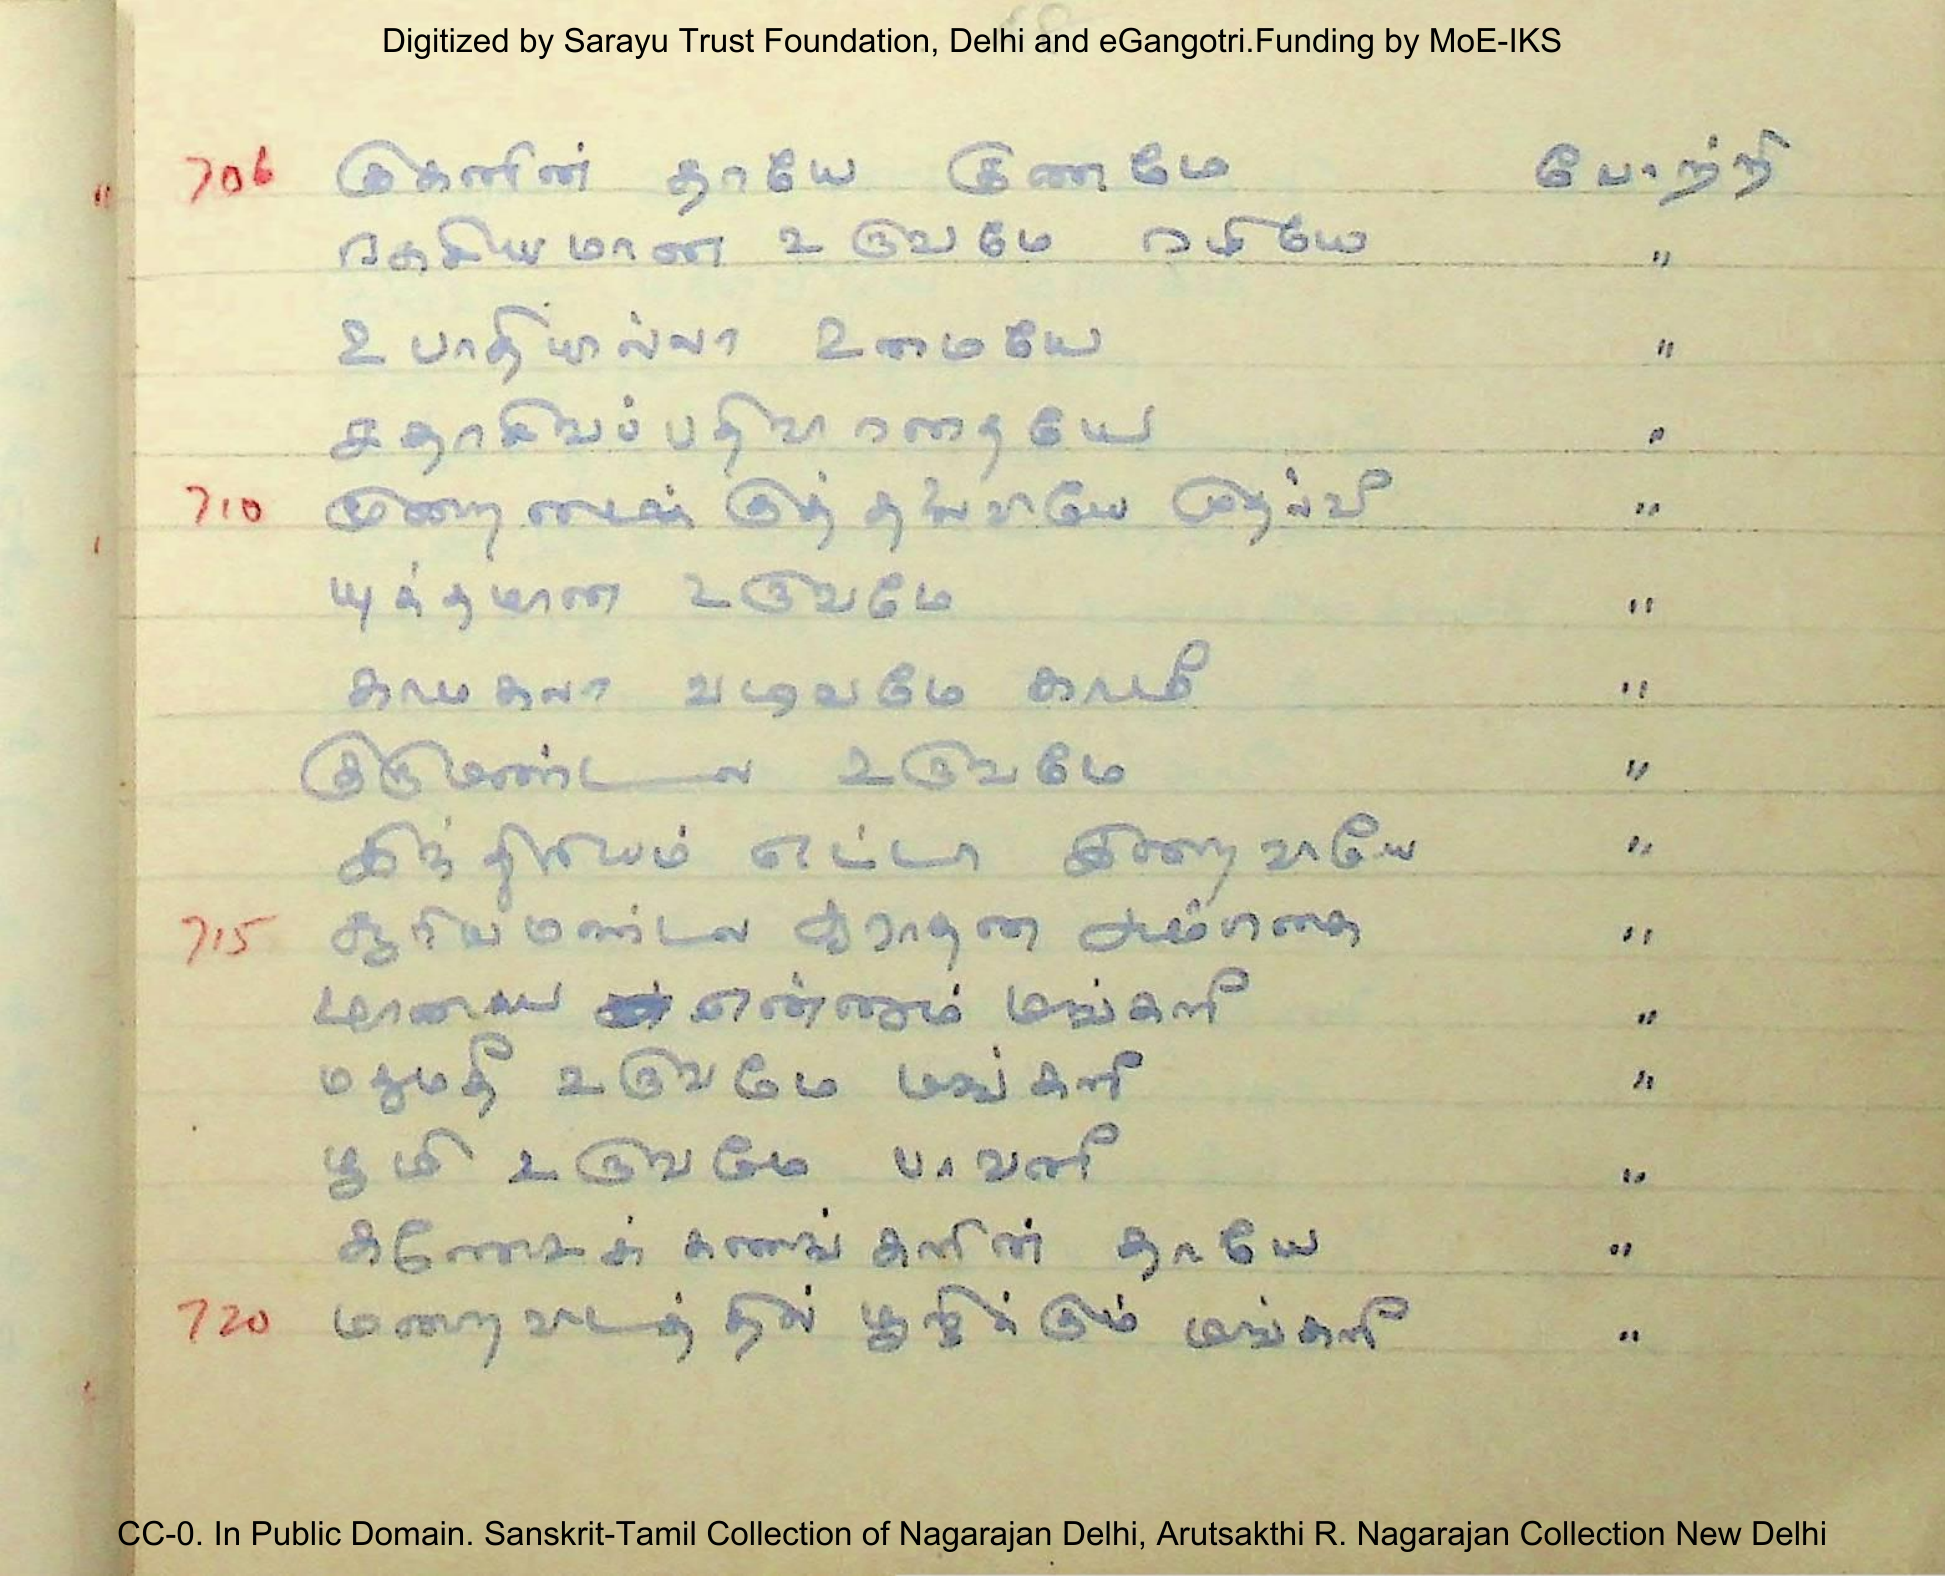 Digitized by Sarayu Trust Foundation, Delhi and eGangotri.Funding by MoE-IKS
706 குகனின் தாயே குணமே போற்றி
ரகசியமான உருவமே ரமியே "
உபாதியில்லா உமையே "
சதாசிவப்பதிவாரதையே "
710 குருமுதல்வி "
யுக்தமான உருவமே "
காமகலா வடிவமே காமி "
குருமண்டல உருவமே "
இந்திரியம் எட்டா இறைவாயே "
715 சூரியமண்டல "
மாயை என்னும் மங்களி "
மதுமதி உருவமே மங்களி "
பூமி உருவமே பாவனி "
கணேசக் கணங்களின் தாயே "
720 மறைவாடத்தில் பூஜிக்கும் மங்களி "
CC-0. In Public Domain. Sanskrit-Tamil Collection of Nagarajan Delhi, Arutsakthi R. Nagarajan Collection New Delhi